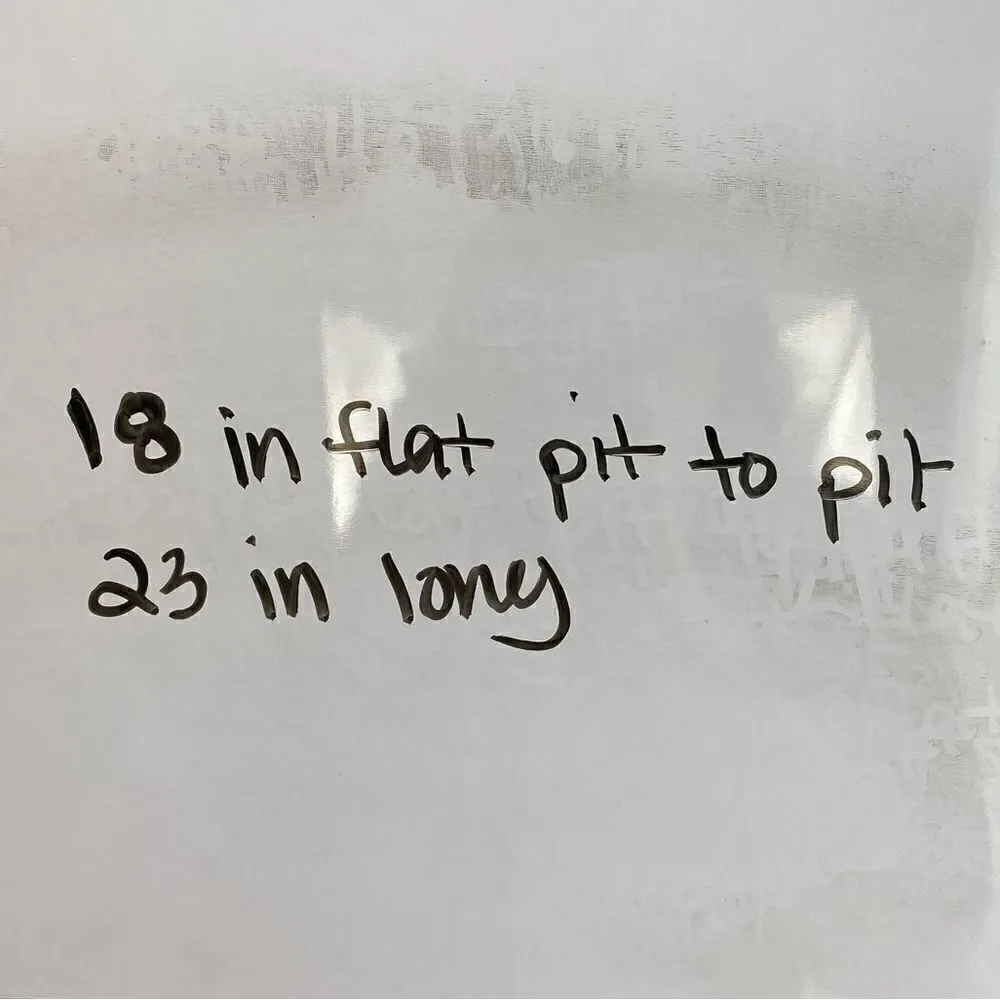 18 in flat pit to pit
23 in long